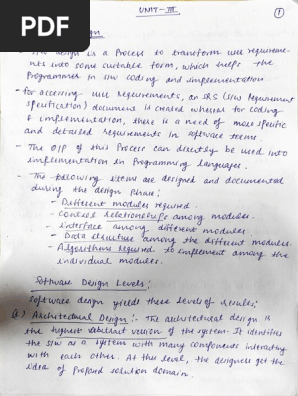 PDF
UNIT-III
1
Design
- S/W design is a Process to transform user requireme-
nts into some suitable form, which helps the
Programmer in S/W coding and implementation
- for accessing user requirements, an SRS (S/W Requirement
Specification) document is created whereas for coding
& implementation, there is a need of more specific
and detailed requirements in software terms.
- The O/P of this Process can directly be used into
implementation in Programming languages.
- The following items are designed and documented
during the design phase:
- Different modules required.
- Control relationships among modules.
- Interface among different modules.
- Data structure among the different modules.
- Algorithms required to implement among the
individual modules.
Software Design Levels:
Software design yields three levels of results:
Architectural Design:- The architectural design is
the highest abstract version of the system. It identifies
the S/W as a system with many components interacting
with each other. At this level, the designers get the
idea of proposed solution domain.